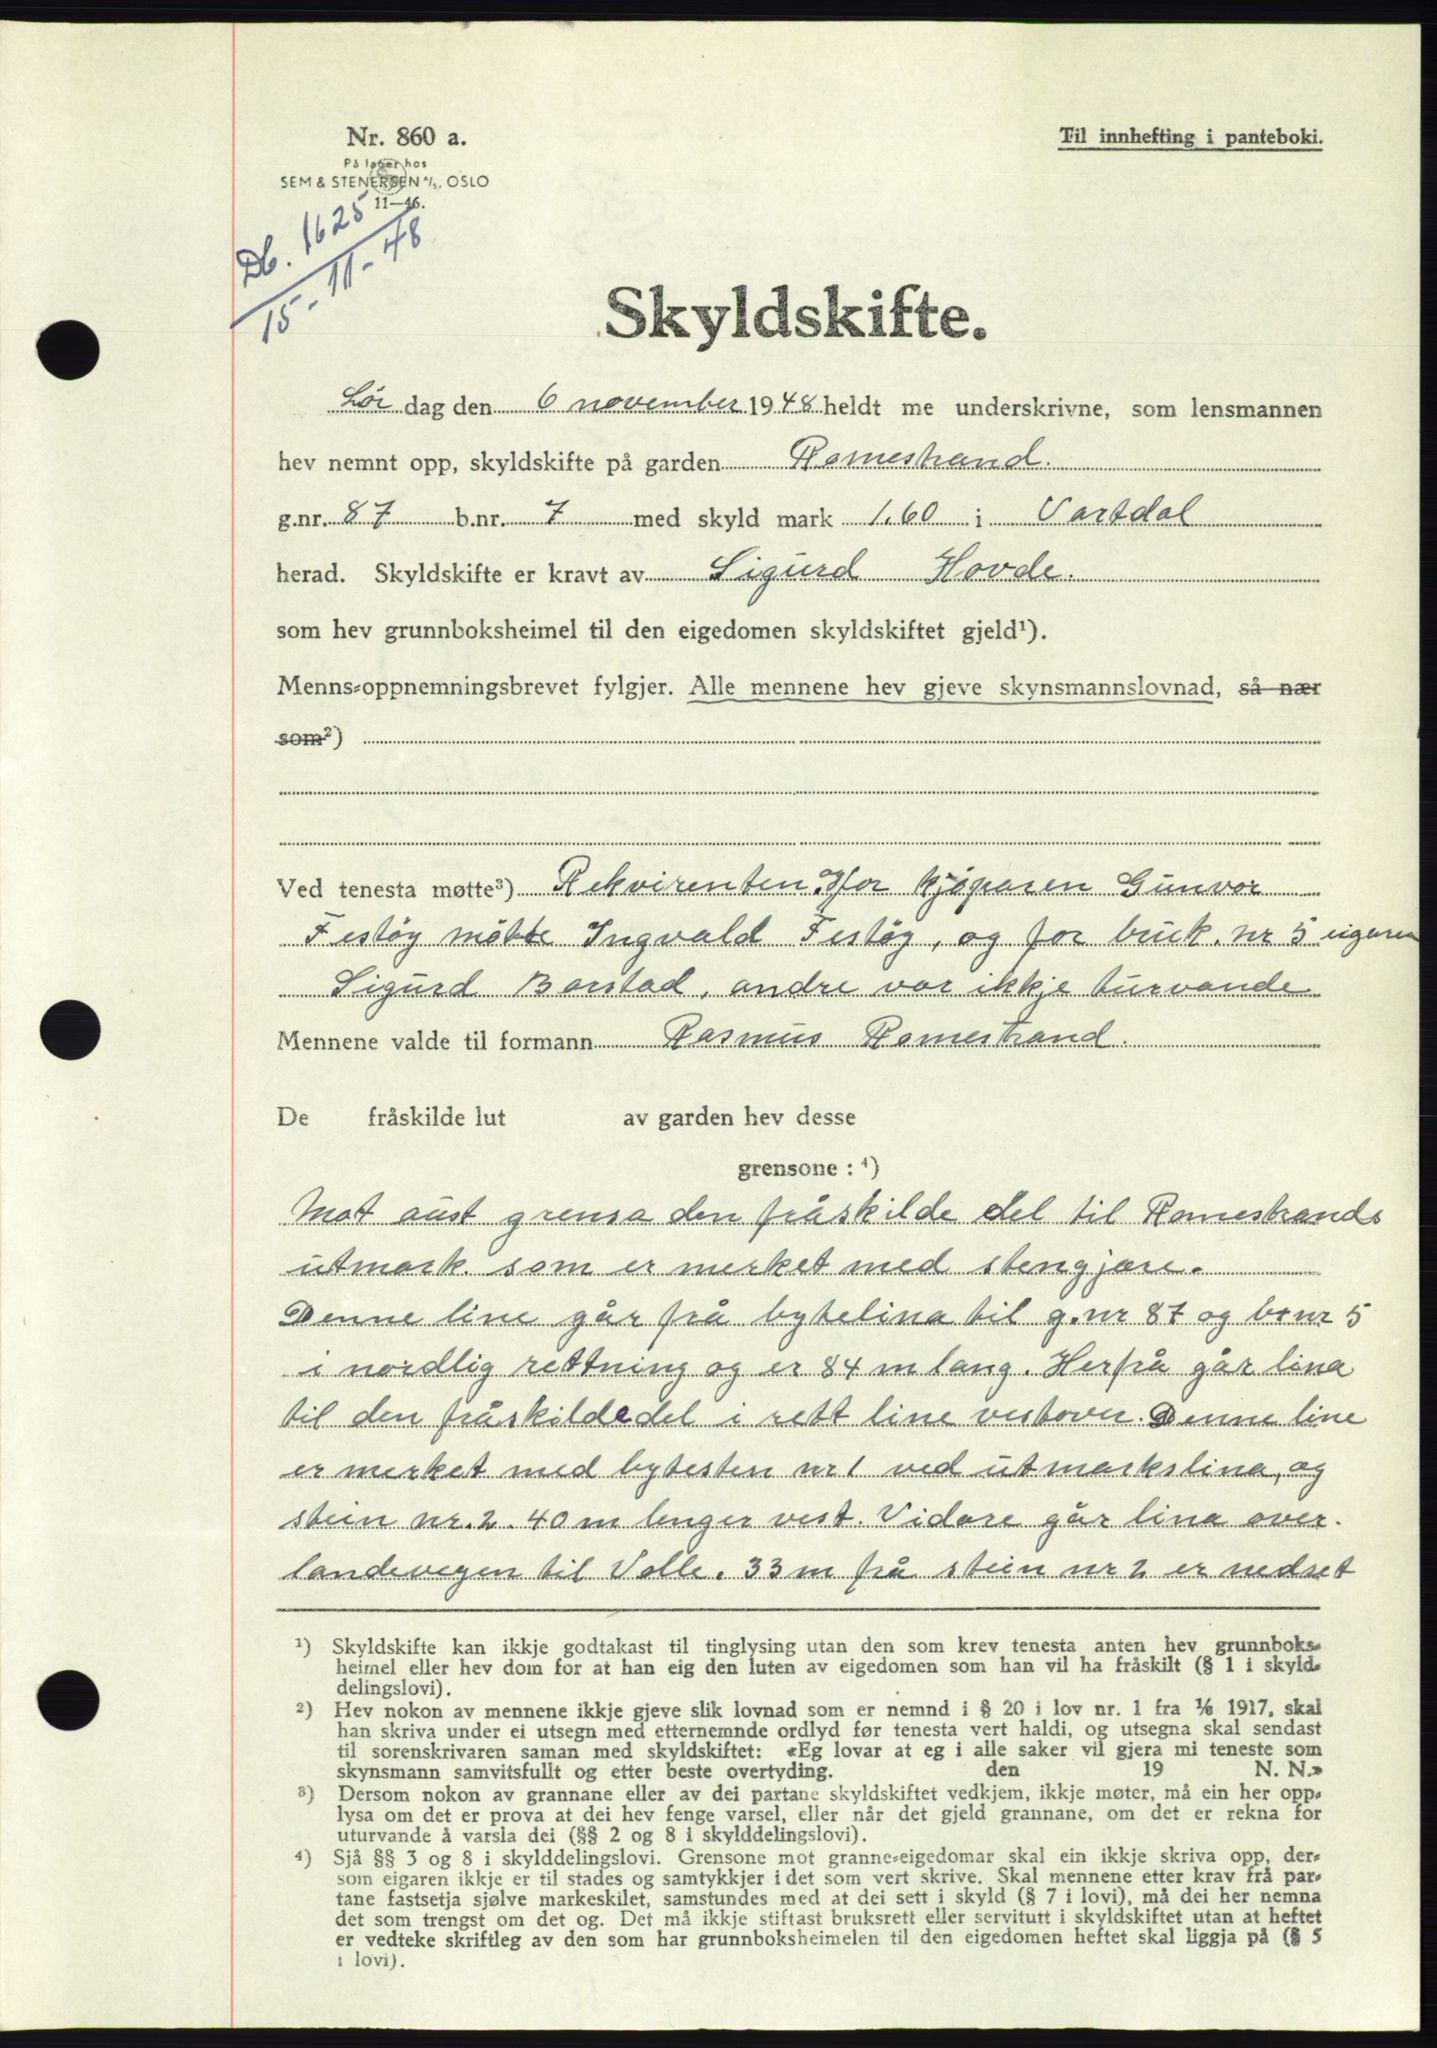 Nr. 860 a.
På lager hos
SEM & STENERSEN A/S, OSLO
11—46.
Til innhefting i panteboki.
Db. 1625
15-11-48
Skyldskifte.
Lør dag den 6 november 1948 heldt me underskrivne, som lensmannen
hev nemnt opp, skyldskifte på garden Romestrand.
g.nr. 87 b.nr. 7 med skyld mark 1.60 i Vartdal
herad. Skyldskifte er kravt av Sigurd Hovde.
som hev grunnboksheimel til den eigedomen skyldskiftet gjeld¹).
Menns-oppnemningsbrevet fylgjer. Alle mennene hev gjeve skynsmannslovnad, så nær
som²)
Ved tenesta møtte³) Rekvirenten og for kjöparen Gunvor
Festöy møtte Ingvald Festöy, og for bruk. nr 5 eigaren
Sigurd Barstad, andre var ikkje turvande
Mennene valde til formann Rasmus Romestrand.
De fråskilde lut av garden hev desse
grensone : ⁴)
Mot aust grensa den fråskilde del til Romestrands
utmark. som er merket med stengjare.
Denne line går frå bytelina til g.nr 87 og br nr 5
i nordlig rettning og er 84 m lang. Herfrå går lina
til den fråskilde del i rett line vestover. Denne line
er merket med bytesten nr 1 ved utmarkslina, og
stein nr. 2. 40 m lenger vest. Vidare går lina over.
landevegen til Valle. 33 m frå stein nr 2 er nedset
¹) Skyldskifte kan ikkje godtakast til tinglysing utan den som krev tenesta anten hev grunnboks-
heimel eller hev dom for at han eig den luten av eigedomen som han vil ha fråskilt (§ 1 i skyld-
delingslovi).
²) Hev nokon av mennene ikkje gjeve slik lovnad som er nemnd i § 20 i lov nr. 1 fra 1/6 1917, skal
han skriva under ei utsegn med etternemnde ordlyd før tenesta vert haldi, og utsegna skal sendast
til sorenskrivaren saman med skyldskiftet: «Eg lovar at eg i alle saker vil gjera mi teneste som
skynsmann samvitsfullt og etter beste overtyding. den 19 N. N.»
³) Dersom nokon av grannane eller av dei partane skyldskiftet vedkjem, ikkje møter, må ein her opp-
lysa om det er prova at dei hev fenge varsel, eller når det gjeld grannane, om det er rekna for
uturvande å varsla dei (§§ 2 og 8 i skylddelingslovi).
⁴) Sjå §§ 3 og 8 i skylddelingslovi. Grensone mot granne-eigedomar skal ein ikkje skriva opp, der-
som eigaren ikkje er til stades og samtykkjer i det som vert skrive. Skal mennene etter krav frå par-
tane fastsetja sjølve markeskilet, samstundes med at dei sett i skyld (§ 7 i lovi), må dei her nemna
det som trengst om det og. Det må ikkje stiftast bruksrett eller servitutt i skyldskiftet utan at heftet
er vedteke skriftleg av den som har grunnboksheimelen til den eigedomen heftet skal liggja på (§ 5
i lovi).